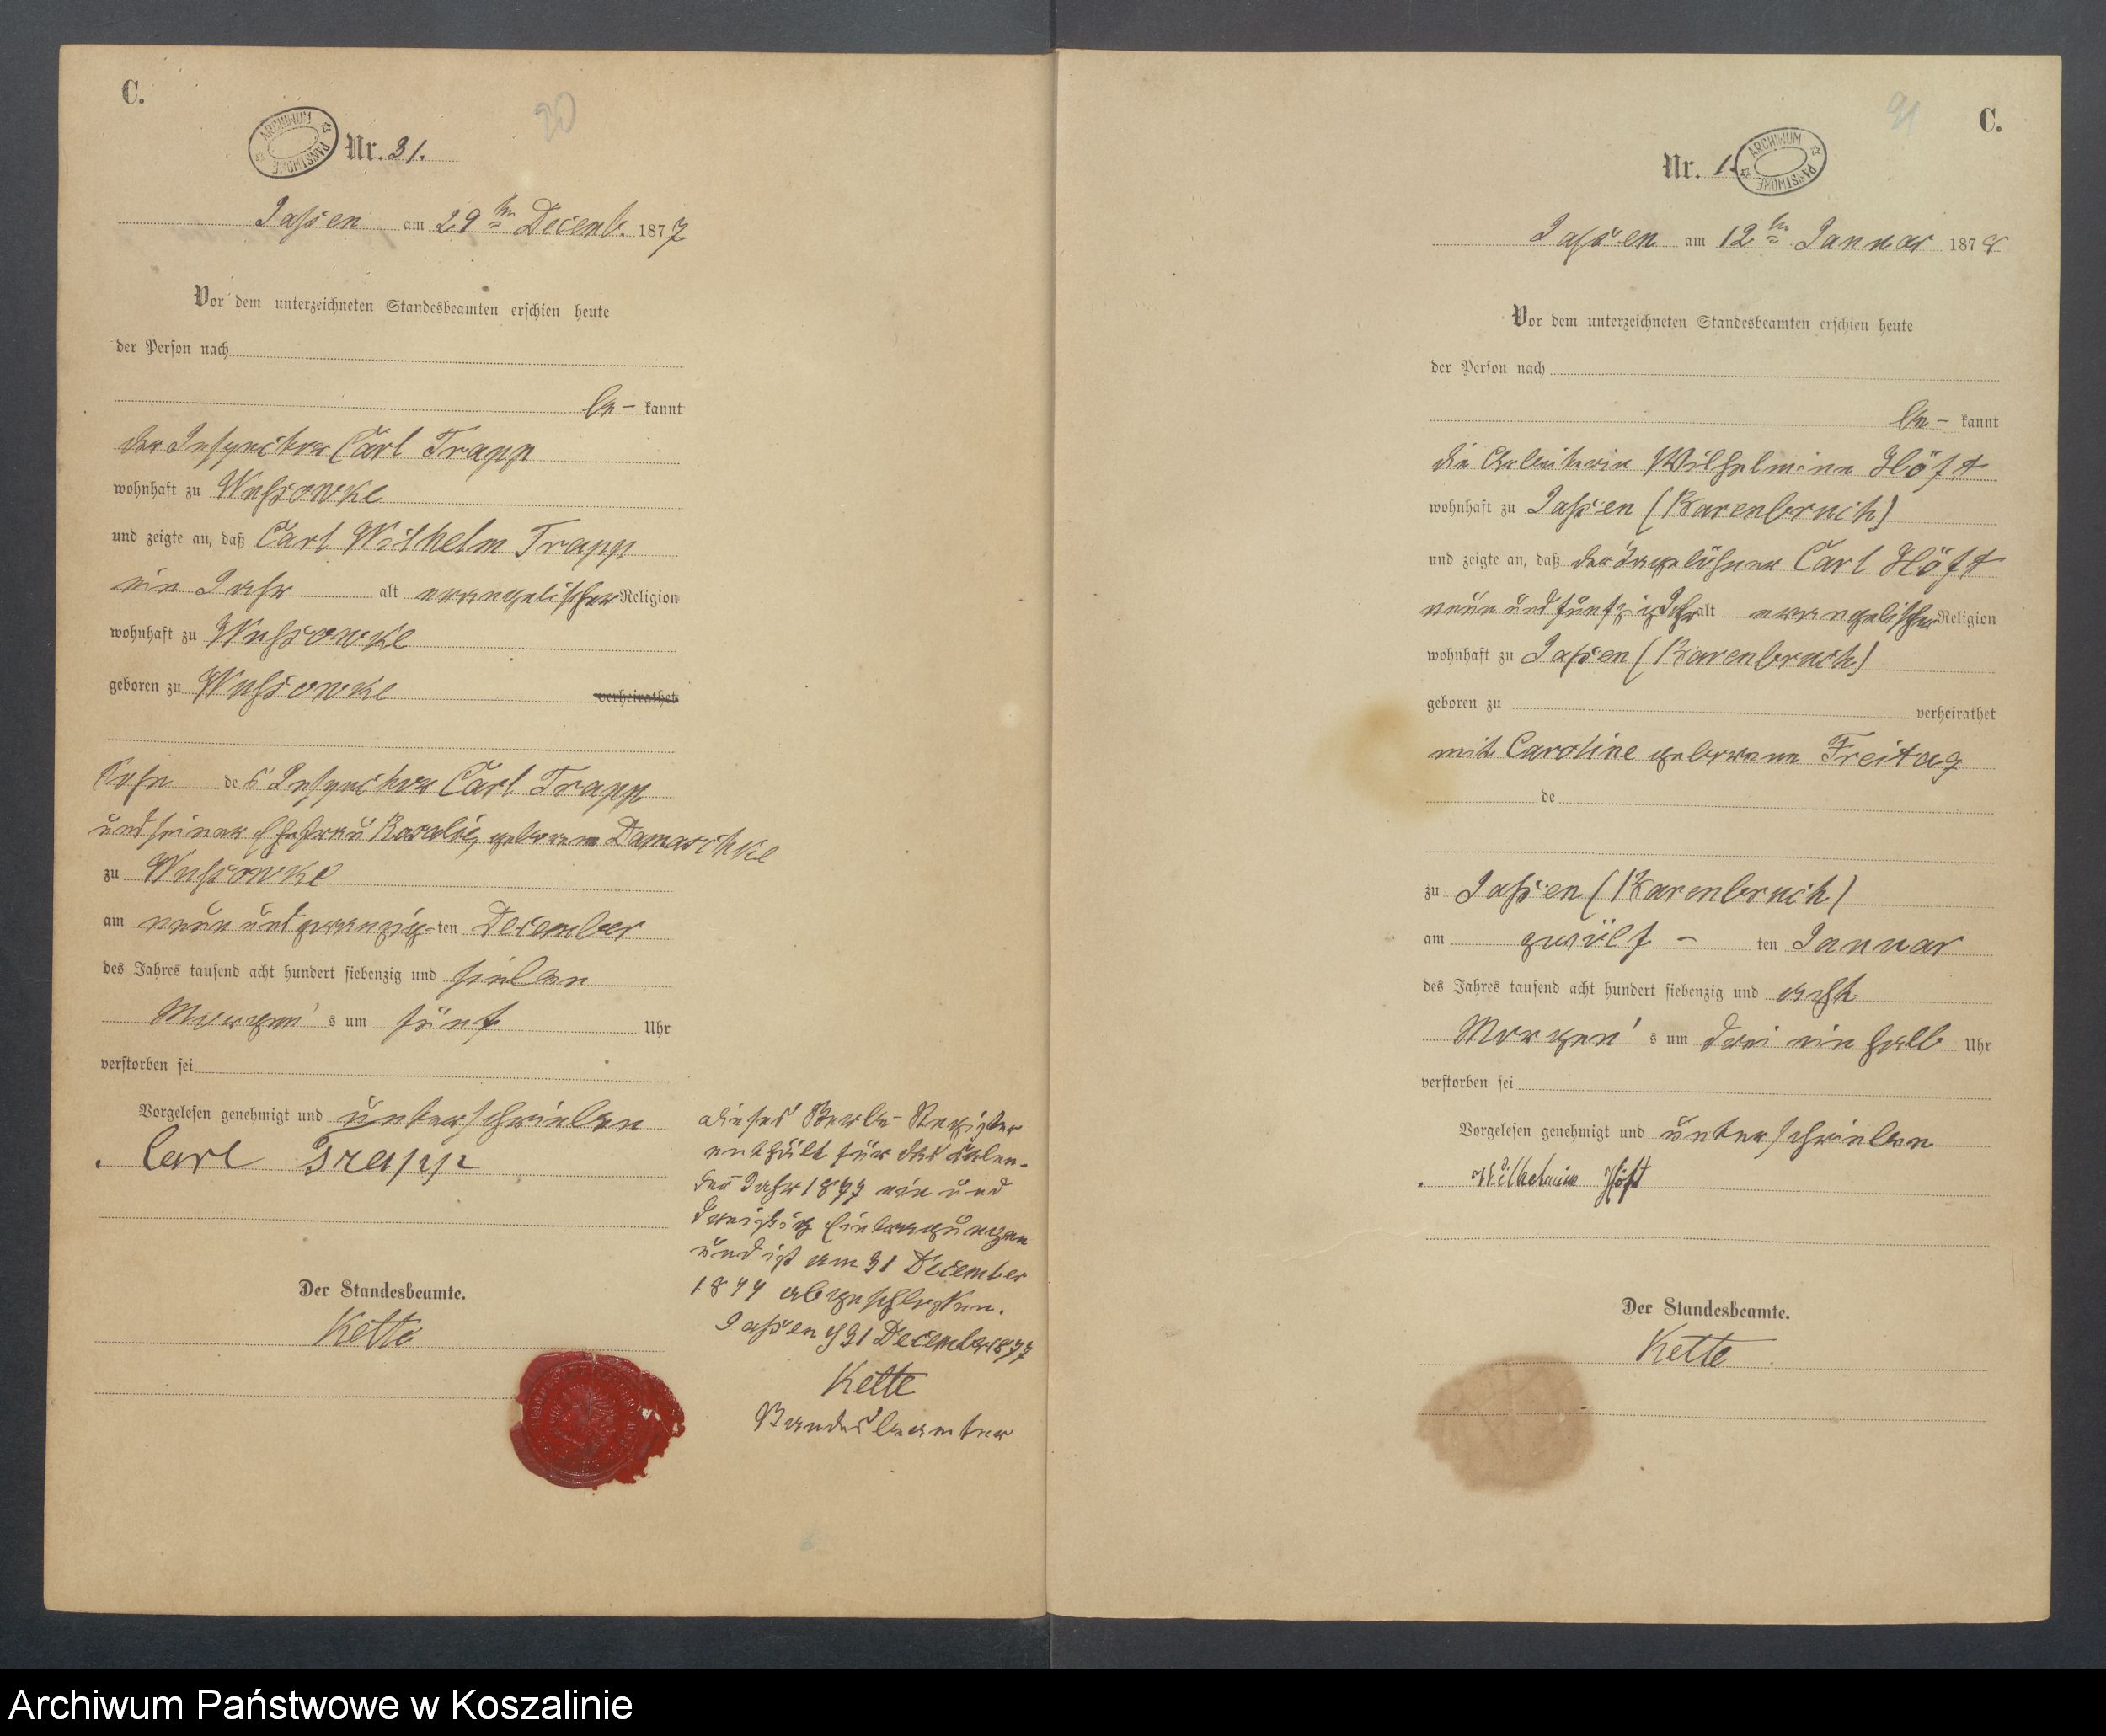 C.
20
ARCHIWUM PAŃSTWOWE
Nr. 31.
Jassen am 29ten Decemb. 1877
Vor dem unterzeichneten Standesbeamten erschien heute
der Person nach
be- kannt
der Inspector Carl Trapp
wohnhaft zu Wussowke
und zeigte an, daß Carl Wilhelm Trapp
ein Jahr alt evangelischer Religion
wohnhaft zu Wussowke
geboren zu Wussowke verheirathet
Sohn des Inspector Carl Trapp
und seiner Ehefrau geborene Damaschke
zu Wussowke
am neun und zwanzig-ten December
des Jahres tausend acht hundert siebenzig und sieben
Morgen's um fünf Uhr
verstorben sei
Vorgelesen genehmigt und unterschrieben
Carl Trapp
Der Standesbeamte.
Kette
Dieses Sterbe-Register
enthält für das Kalen-
der Jahr 1877 ein und
dreißig Eintragungen
und ist am 31 December
1877 abgeschlossen.
Jassen 31 December 1877
Kette
Standesbeamter
C.
21
Nr. 1.
ARCHIWUM PAŃSTWOWE
Jassen am 12ten Januar 1878
Vor dem unterzeichneten Standesbeamten erschien heute
der Person nach
be- kannt
die Arbeiterin Wilhelmine Höft
wohnhaft zu Jassen (Karenbruch)
und zeigte an, daß der Tagelöhner Carl Höft
neun und fünfzig Jahr alt evangelischer Religion
wohnhaft zu Jassen (Karenbruch)
geboren zu verheirathet
mit Caroline geborene Freitag
de
zu Jassen (Karenbruch)
am zwölf - ten Januar
des Jahres tausend acht hundert siebenzig und acht
Morgen's um drei ein halb Uhr
verstorben sei
Vorgelesen genehmigt und unterschrieben
Wilhelmine Höft
Der Standesbeamte.
Kette
Archiwum Państwowe w Koszalinie